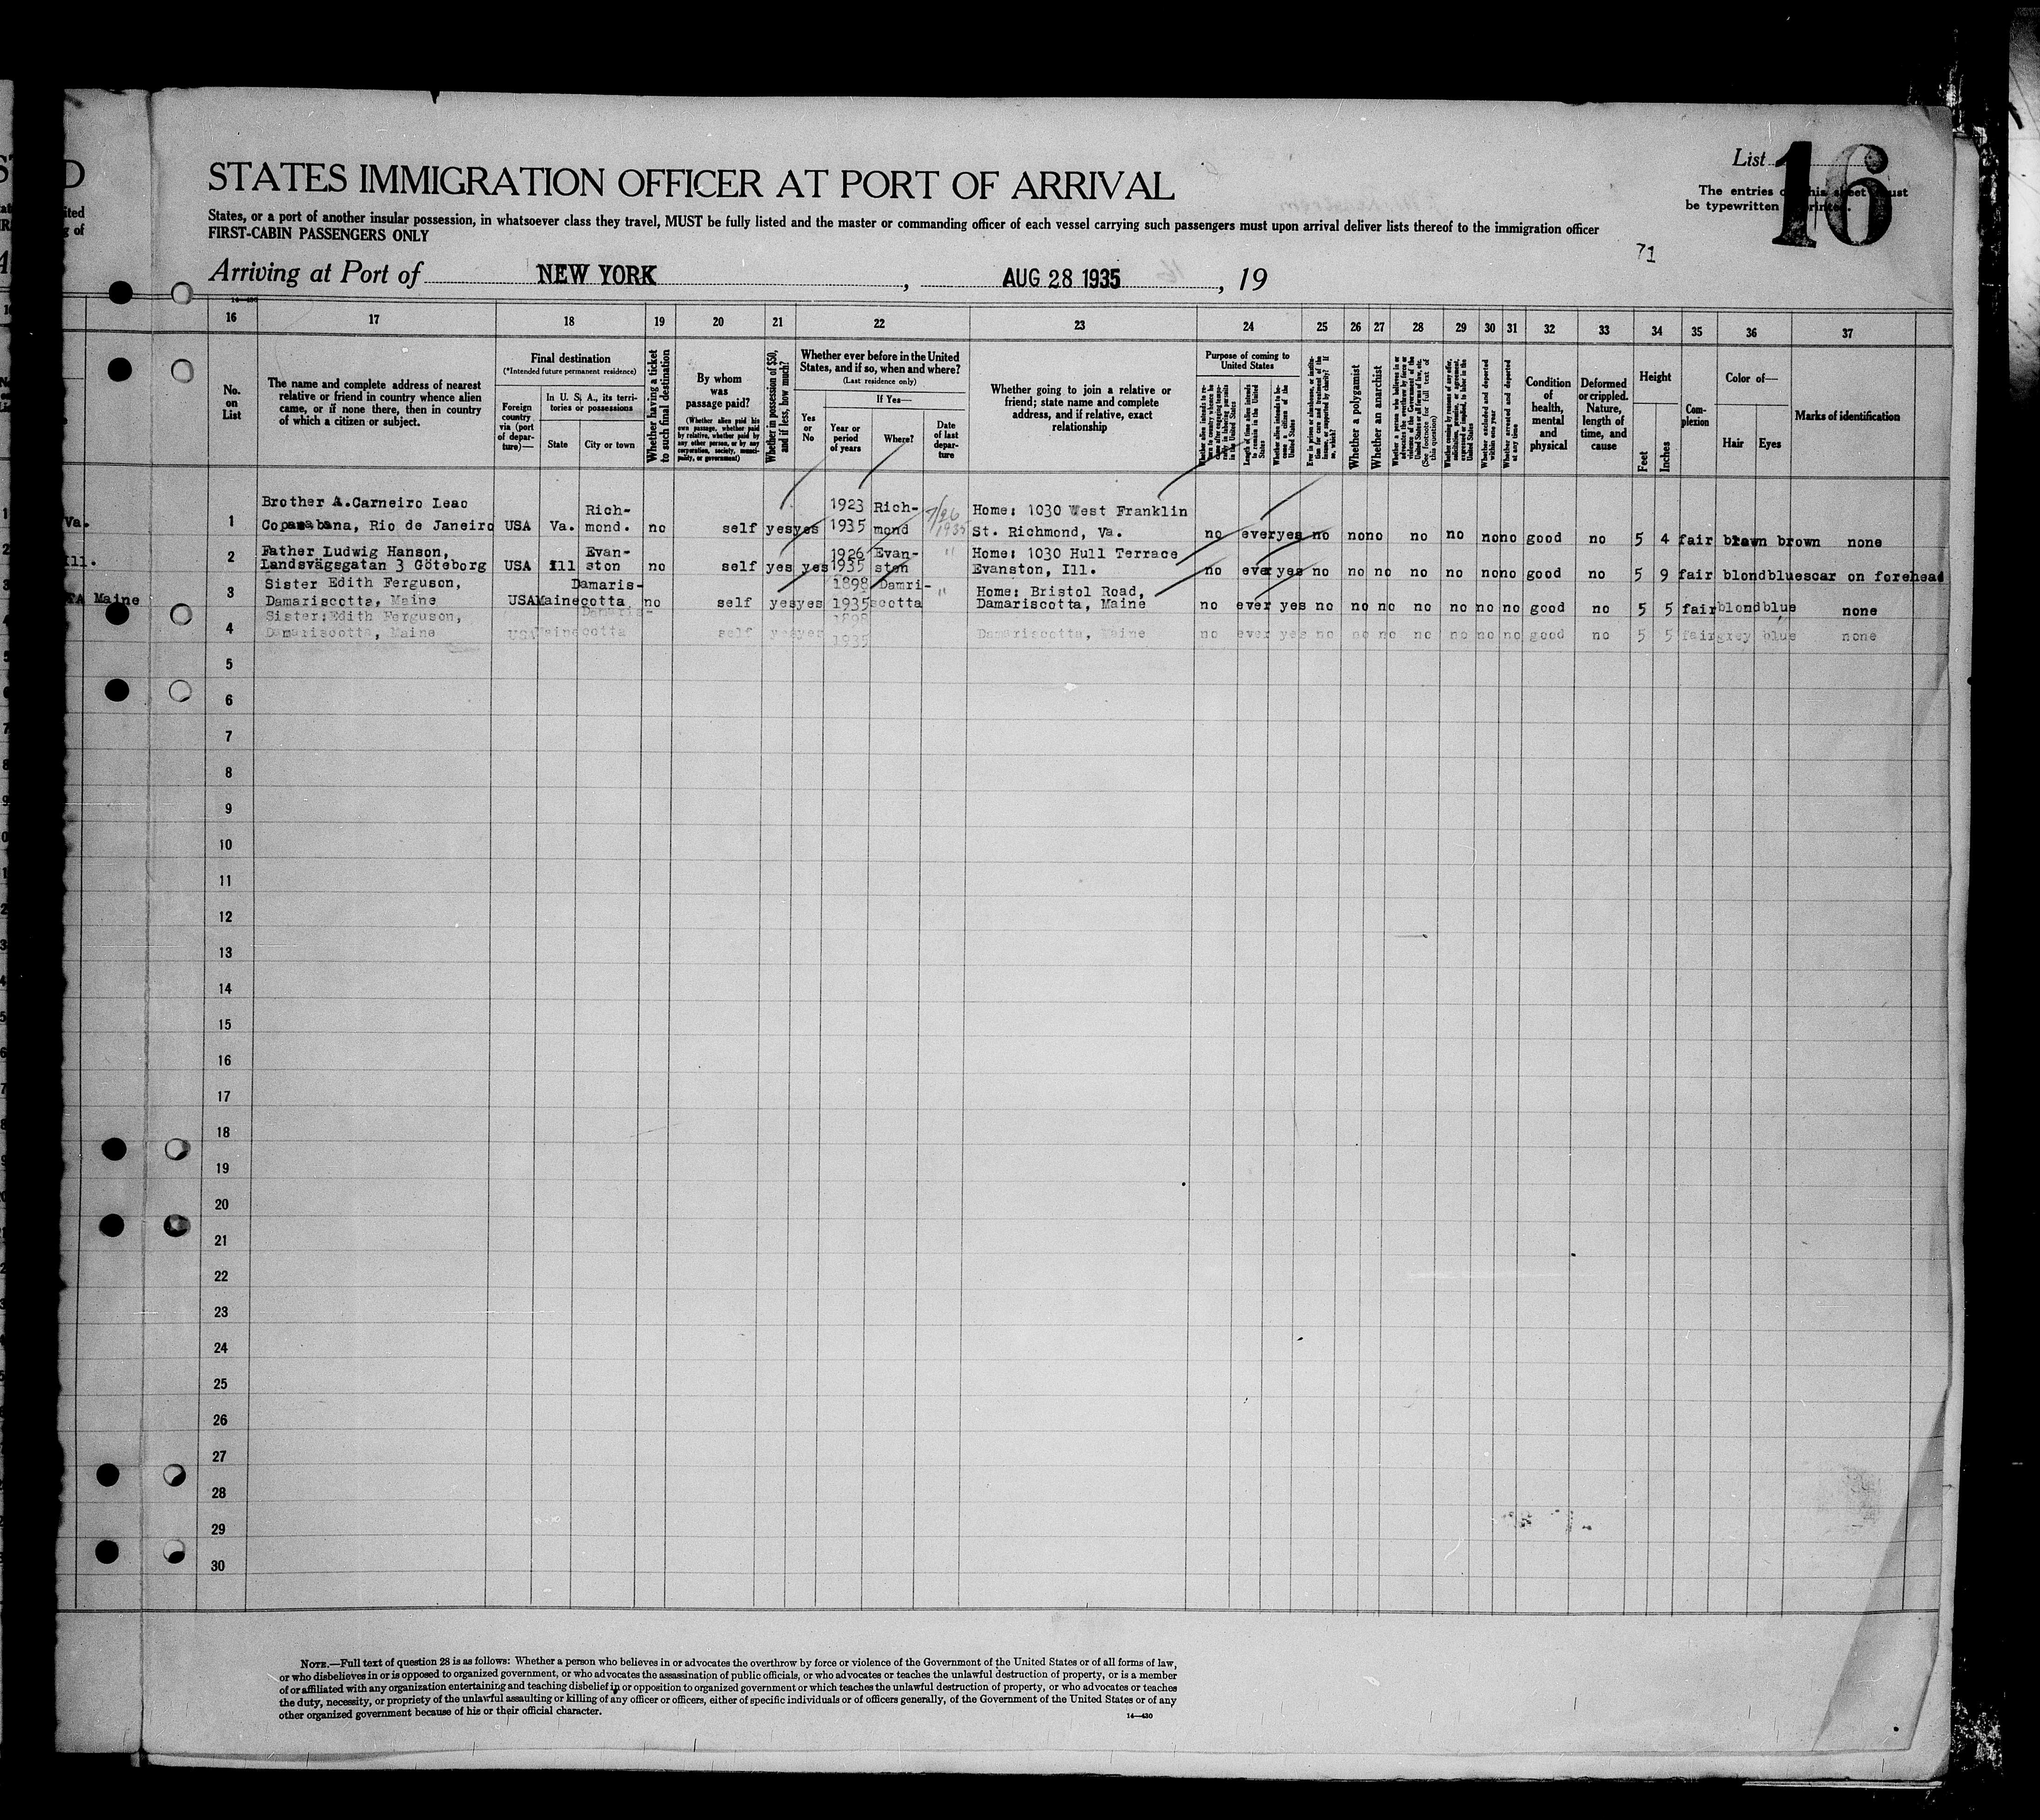 STATES IMMIGRATION OFFICER AT PORT OF ARRIVAL
List 16
The entries on this sheet must
be typewritten or printed.
States, or a port of another insular possession, in whatsoever class they travel, MUST be fully listed and the master or commanding officer of each vessel carrying such passengers must upon arrival deliver lists thereof to the immigration officer
FIRST-CABIN PASSENGERS ONLY
71
Arriving at Port of NEW YORK, AUG 28 1935, 19
16 17 18 19 20 21 22 23 24 25 26 27 28 29 30 31 32 33 34 35 36 37
No.
on
List
The name and complete address of nearest
relative or friend in country whence alien
came, or if none there, then in country
of which a citizen or subject.
Final destination
(*Intended future permanent residence)
Foreign
country
via (port
of depar-
ture)—
In U. S. A., its terri-
tories or possessions
State
City or town
Whether having a ticket
to such final destination
By whom
was
passage paid?
(Whether alien paid his
own passage, whether paid
by relative, whether paid by
any other person, or by any
corporation, society, munici-
pality, or government)
Whether in possession of $50,
and if less, how much?
Whether ever before in the United
States, and if so, when and where?
(Last residence only)
Yes
or
No
If Yes—
Year or
period
of years
Where?
Date
of last
depar-
ture
Whether going to join a relative or
friend; state name and complete
address, and if relative, exact
relationship
Purpose of coming to
United States
Length of time alien intends
to remain in the United
States
Whether alien intends to be-
come a citizen of the
United States
Whether a polygamist
Whether an anarchist
Whether excluded and deported
within one year
Whether arrested and deported
at any time
Condition
of
health,
mental
and
physical
Deformed
or crippled.
Nature,
length of
time, and
cause
Height
Feet
Inches
Com-
plexion
Color of—
Hair
Eyes
Marks of identification
Va.
1 Brother A.Carneiro Leao
Copacabana, Rio de Janeiro USA Va. Rich-
mond. no self yes yes 1923
1935 Rich-
mond 7/26
1935 Home: 1030 West Franklin
St. Richmond, Va. no ever yes no no no no no no no good no 5 4 fair brown brown none
Ill.
2 Father Ludwig Hanson,
Landsvägsgatan 3 Göteborg USA Ill Evan-
ston no self yes yes 1926
1935 Evan-
ston " Home: 1030 Hull Terrace
Evanston, Ill. no ever yes no no no no no no no good no 5 9 fair blond blue scar on forehead
Maine
3 Sister Edith Ferguson,
Damariscotta, Maine USA Maine Damaris-
cotta no self yes yes 1898
1935 Damri-
scotta " Home: Bristol Road,
Damariscotta, Maine no ever yes no no no no no no no good no 5 5 fair blond blue none
4 Sister:Edith Ferguson,
Damariscotta, Maine USA Maine Damaris-
cotta self yes yes 1898
1935 Damariscotta, Maine no ever yes no no no no no no no good no 5 5 fair grey blue none
5
6
7
8
9
10
11
12
13
14
15
16
17
18
19
20
21
22
23
24
25
26
27
28
29
30
NOTE.—Full text of question 28 is as follows: Whether a person who believes in or advocates the overthrow by force or violence of the Government of the United States or of all forms of law,
or who disbelieves in or is opposed to organized government, or who advocates the assassination of public officials, or who advocates or teaches the unlawful destruction of property, or is a member
of or affiliated with any organization entertaining and teaching disbelief in or opposition to organized government or which teaches the unlawful destruction of property, or who advocates or teaches
the duty, necessity, or propriety of the unlawful assaulting or killing of any officer or officers, either of specific individuals or of officers generally, of the Government of the United States or of any
other organized government because of his or their official character.
14—430